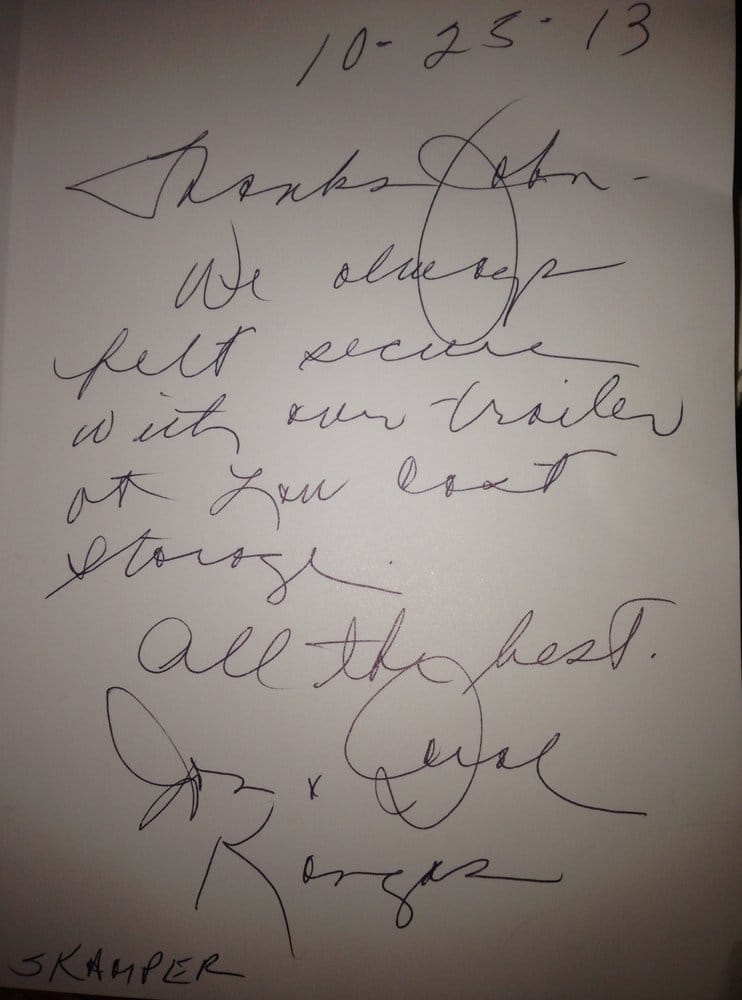 10-25-13
Thanks John -
We always
felt secure
with our trailer
at Low Cost
Storage.
All the best.
Jon &
Kangas
SKAMPER